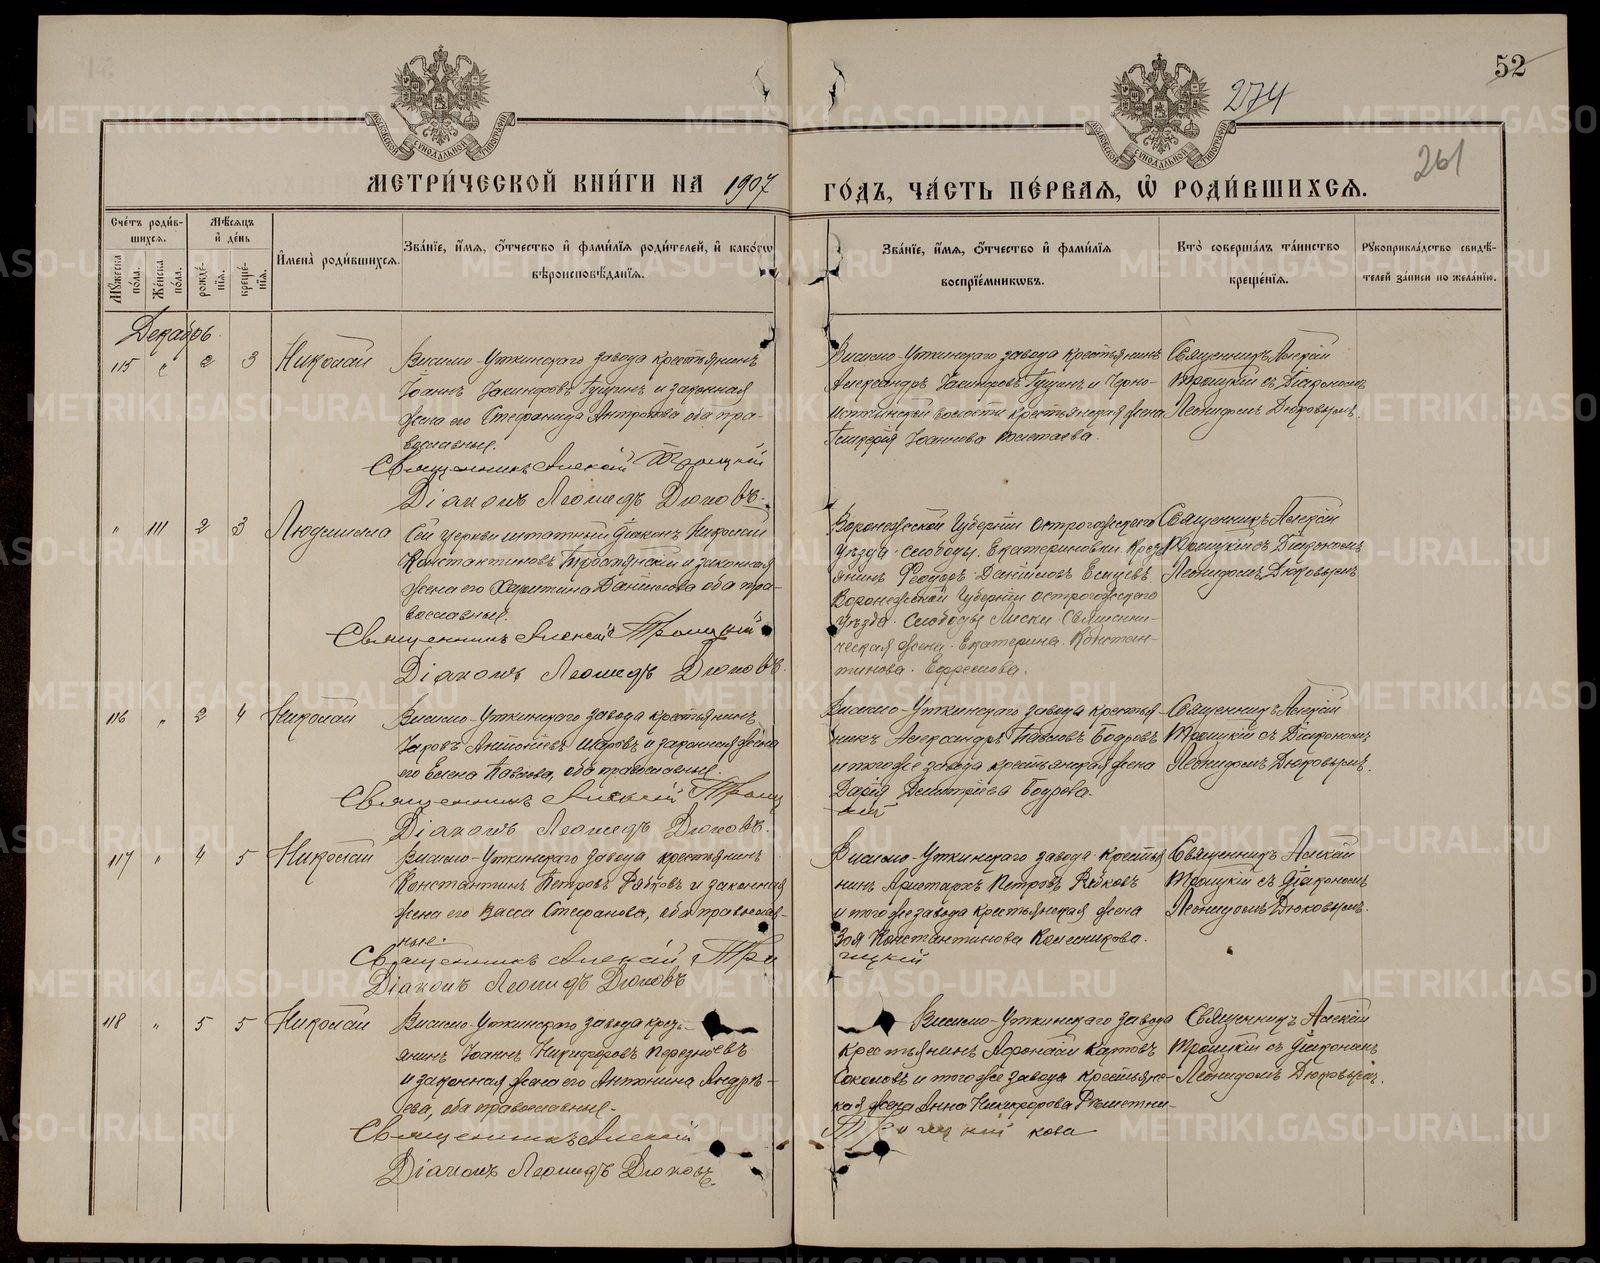 52
274
261
МЕТРИ́ЧЕСКОЙ КНИ́ГИ НА 1907 ГО́ДЪ, ЧА́СТЬ ПЕ́РВАЯ, Ѡ РОДИ́ВШИХСЯ.
Сче́тъ роди́вшихся.
Му́жеска по́ла.
Же́нска по́ла.
Мѣ́сяцъ и҆ де́нь
рожде́нїя.
креще́нїя.
И҆мена̀ роди́вшихся.
Зва́нїе, и҆́мя, ѻ҆́тчество и҆ фами́лїя роди́телей, и҆ како́гѡ
вѣроисповѣ́данїя.
Зва́нїе, и҆́мя, ѻ҆́тчество и҆ фами́лїя
воспрїе́мникѡвъ.
Кто̀ соверша́лъ та́инство
креще́нїя.
Рꙋкоприкла́дство свидѣ́-
телей за́писи по жела́нїю.
Декабрь.
115 " 2 3 Николай
Висимо-Уткинскаго завода крестьянинъ
Іоаннъ Іакинфовъ Гущинъ и законная
жена его Стефанида Антропова оба пра-
вославные.
Священникъ Алексій Троицкій
Діаконъ Леонидъ Дюковъ.
Висимо-Уткинскаго завода крестьянинъ
Александръ Іакинфовъ Гущинъ и Черно-
источинской волости крестьянская жена
Гликерія Іоаннова
Священникъ Алексій
Троицкій съ Діакономъ
Леонидомъ Дюковымъ.
" 111 2 3 Людмила
Сей церкви штатный діаконъ Николай
Константиновъ и законная
жена его Харитина Даніилова оба пра-
вославные.
Священникъ Алексій Троицкій
Діаконъ Леонидъ Дюковъ.
Воронежской Губерніи Острогожскаго
уѣзда слободы Екатериновки Кресть-
янинъ Ѳеодоръ Даніиловъ
Воронежской Губерніи Острогожскаго
уѣзда Слободы Лиски Священни-
ческая жена Екатерина Констан-
тинова Ефремова.
Священникъ Алексій
Троицкій съ Діакономъ
Леонидомъ Дюковымъ
116 " 2 4 Николай
Висимо-Уткинскаго завода крестьянинъ
Іаковъ Антоніевъ и законная жена
его Елена Павлова, оба православные.
Священникъ Алексій Троиц
Діаконъ Леонидъ Дюковъ.
Висимо-Уткинскаго завода крестья-
нинъ Александръ Павловъ Бобровъ
и того же завода крестьянская жена
Дарія Димитріева Боброва.
кій
Священникъ Алексій
Троицкій съ Діакономъ
Леонидомъ Дюковымъ.
117 " 4 5 Николай
Висимо-Уткинскаго завода крестьянинъ
Константинъ Петровъ Рябковъ и законная
жена его Васса Стефанова, оба православ-
ные.
Священникъ Алексій Трои
Діаконъ Леонидъ Дюковъ
Висимо-Уткинскаго завода крестья
нинъ Аристархъ Петровъ Рябковъ
и того же завода крестьянская жена
Зоя Константинова Колесникова.
цкій
Священникъ Алексій
Троицкій съ діакономъ
Леонидомъ Дюковымъ.
118 " 5 5 Николай
Висимо-Уткинскаго завода кресть-
янинъ Іоаннъ Никифоровъ
и законная жена его Антонина Андре-
ева, оба православные.
Священникъ Алексій
Діаконъ Леонидъ Дюковъ.
Висимо-Уткинскаго завода
крестьянинъ Афонасій Карповъ
Соколовъ и того же завода крестьянс-
кая жена Анна Никифорова Решетни-
Троицкій кова
Священникъ Алексій
Троицкій съ діакономъ
Леонидомъ Дюковымъ.
METRIKI.GASO-URAL.RU